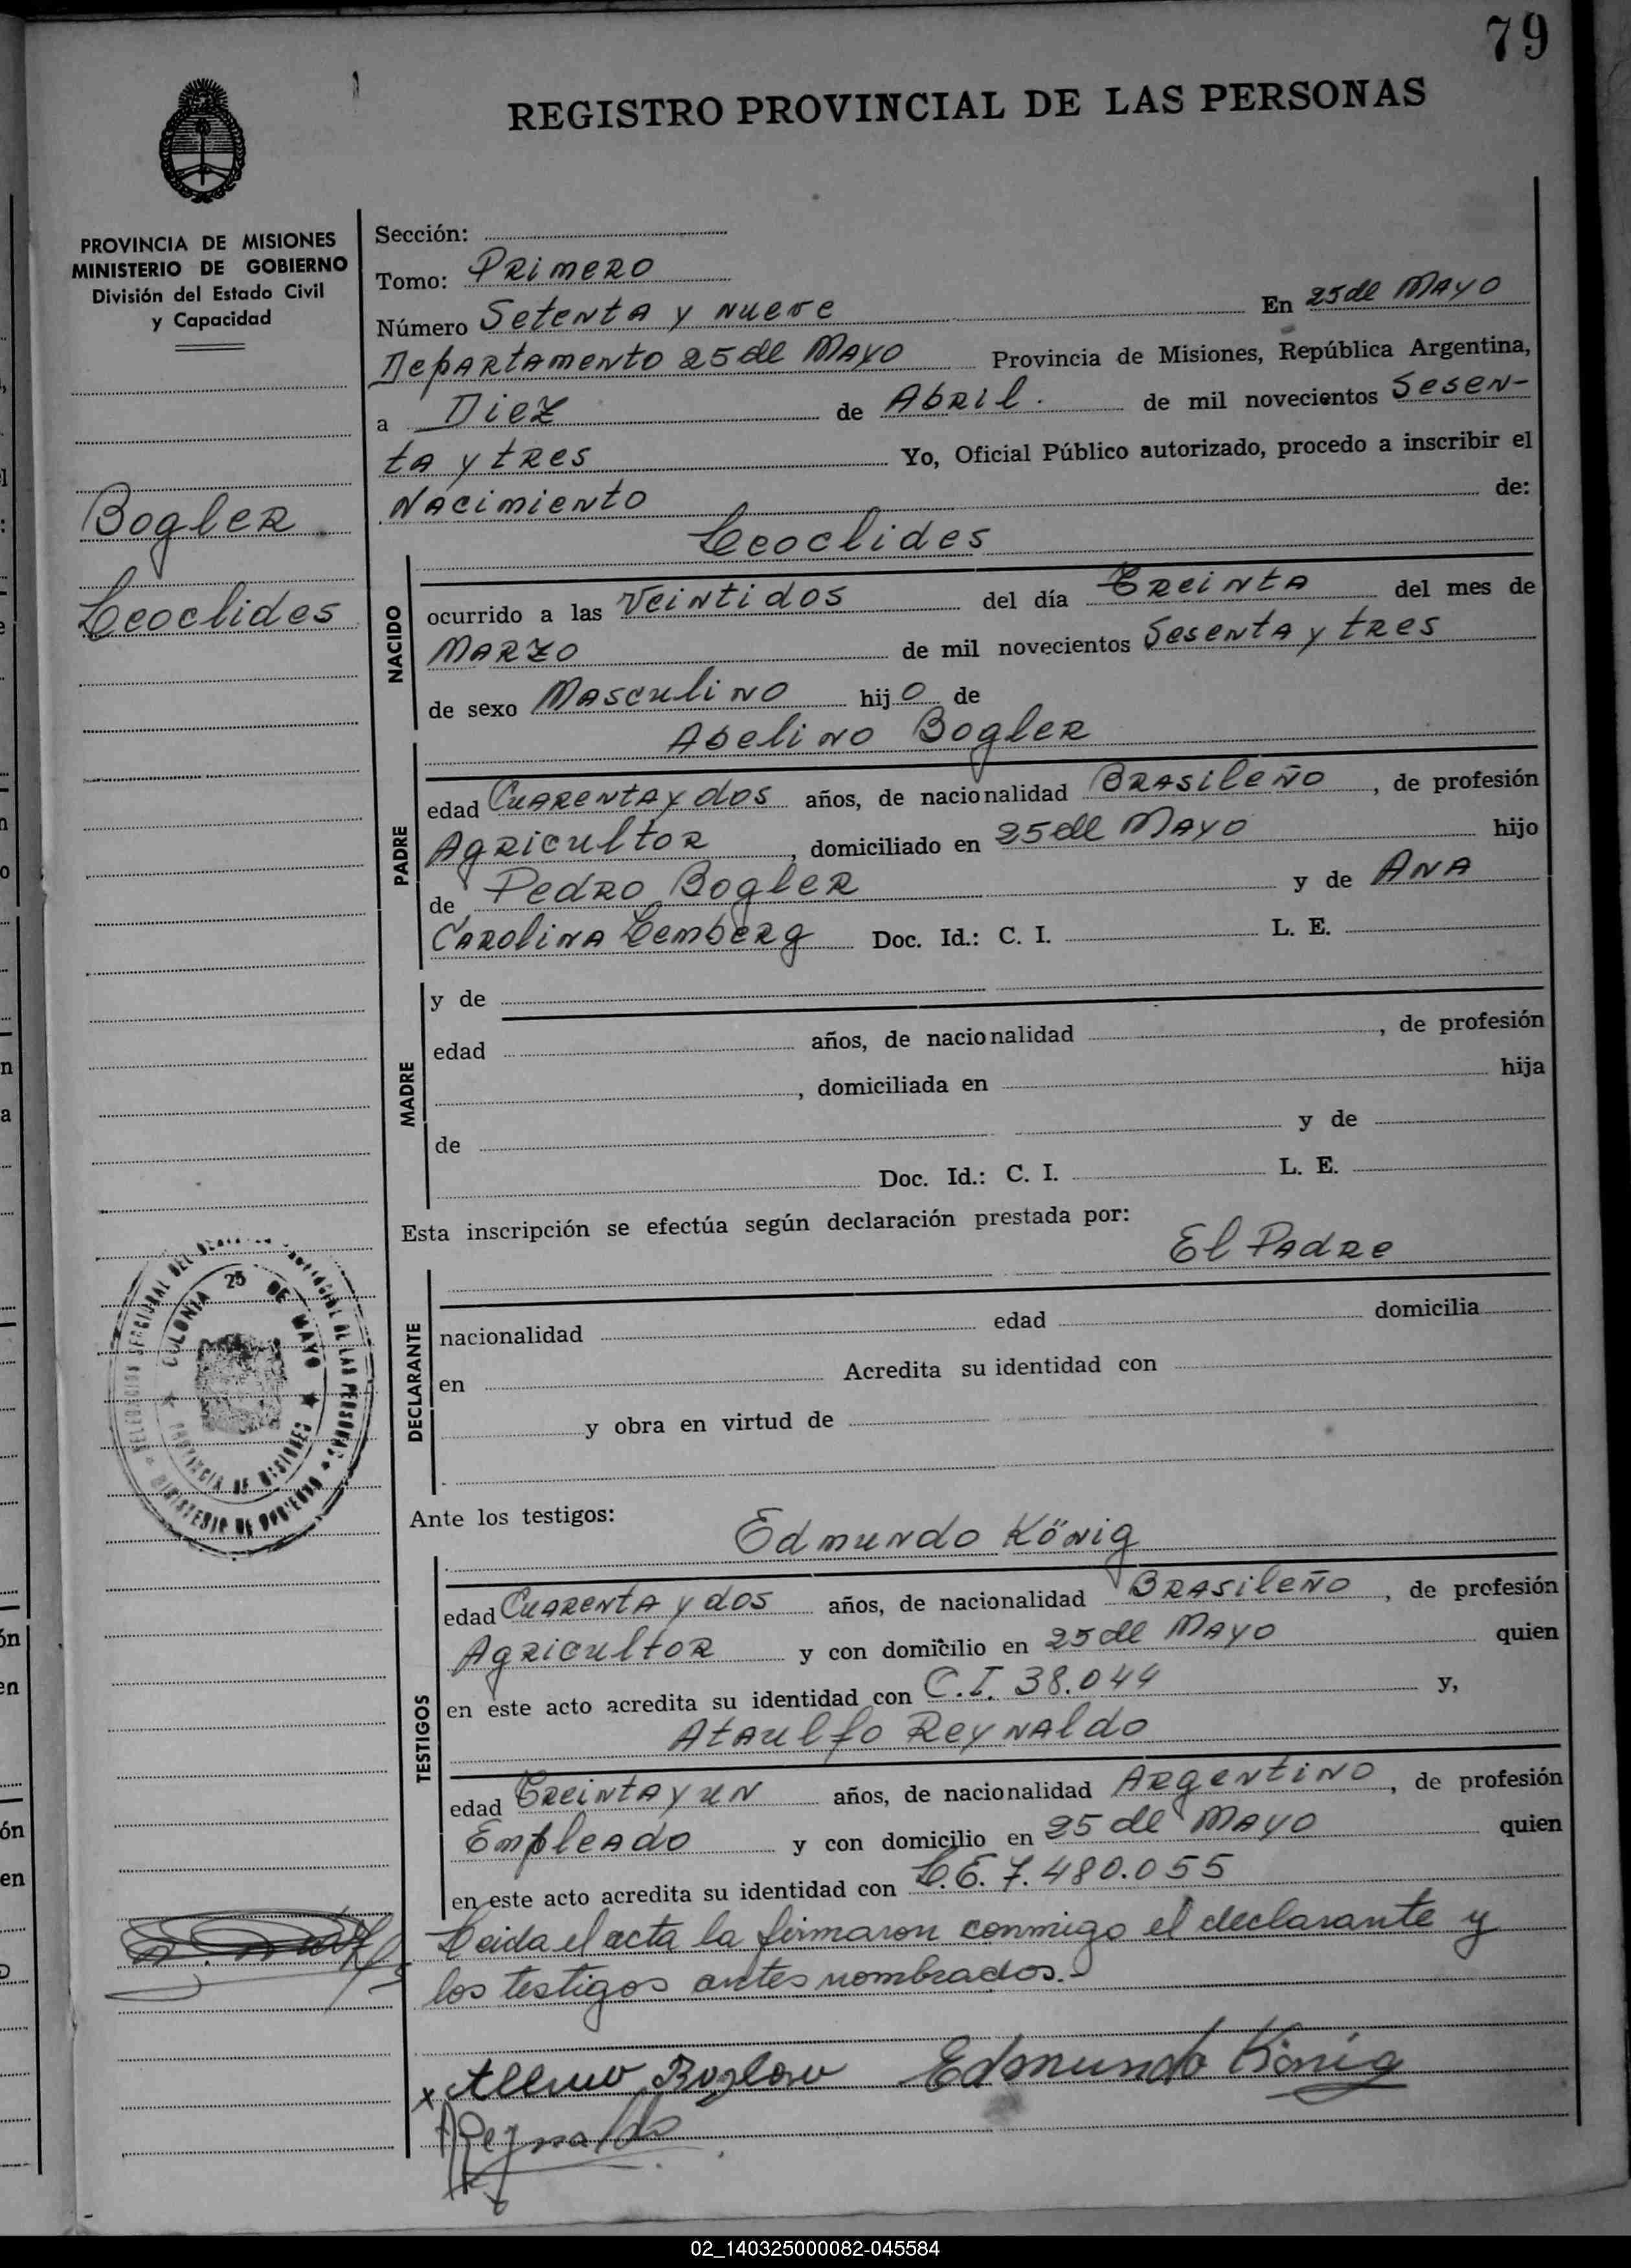 79
REGISTRO PROVINCIAL DE LAS PERSONAS
PROVINCIA DE MISIONES
MINISTERIO DE GOBIERNO
División del Estado Civil
y Capacidad
Bogler
Leoclides
Sección:
Tomo: Primero
Número Setenta y nueve En 25 de Mayo
Departamento 25 de Mayo Provincia de Misiones, República Argentina,
a Diez de Abril. de mil novecientos Sesen-
ta y tres Yo, Oficial Público autorizado, procedo a inscribir el
Nacimiento de:
Leoclides
NACIDO
ocurrido a las Veintidos del día Treinta del mes de
Marzo de mil novecientos Sesenta y tres
de sexo Masculino hijo de
Abelino Bogler
PADRE
edad Cuarenta y dos años, de nacionalidad Brasileño, de profesión
Agricultor, domiciliado en 25 de Mayo hijo
de Pedro Bogler y de Ana
Carolina Lemberg Doc. Id.: C. I. L. E.
MADRE
y de
edad años, de nacionalidad , de profesión
, domiciliada en hija
de y de
Doc. Id.: C. I. L. E.
Esta inscripción se efectúa según declaración prestada por:
El Padre
DECLARANTE
nacionalidad edad domicilia
en Acredita su identidad con
y obra en virtud de
COLONIA 25 DE MAYO
PROVINCIA DE MISIONES
MINISTERIO DE GOBIERNO
Ante los testigos:
Edmundo König
TESTIGOS
edad Cuarenta y dos años, de nacionalidad Brasileño, de profesión
Agricultor y con domicilio en 25 de Mayo quien
en este acto acredita su identidad con C.I. 38.044 y,
Ataulfo Reynaldo
edad Treinta y un años, de nacionalidad Argentino, de profesión
Empleado y con domicilio en 25 de Mayo quien
en este acto acredita su identidad con L.E. 7.480.055
Leida el acta la firmaron conmigo el declarante y
los testigos antes nombrados.-
x Edmundo König
AReynaldo
02_140325000082-045584